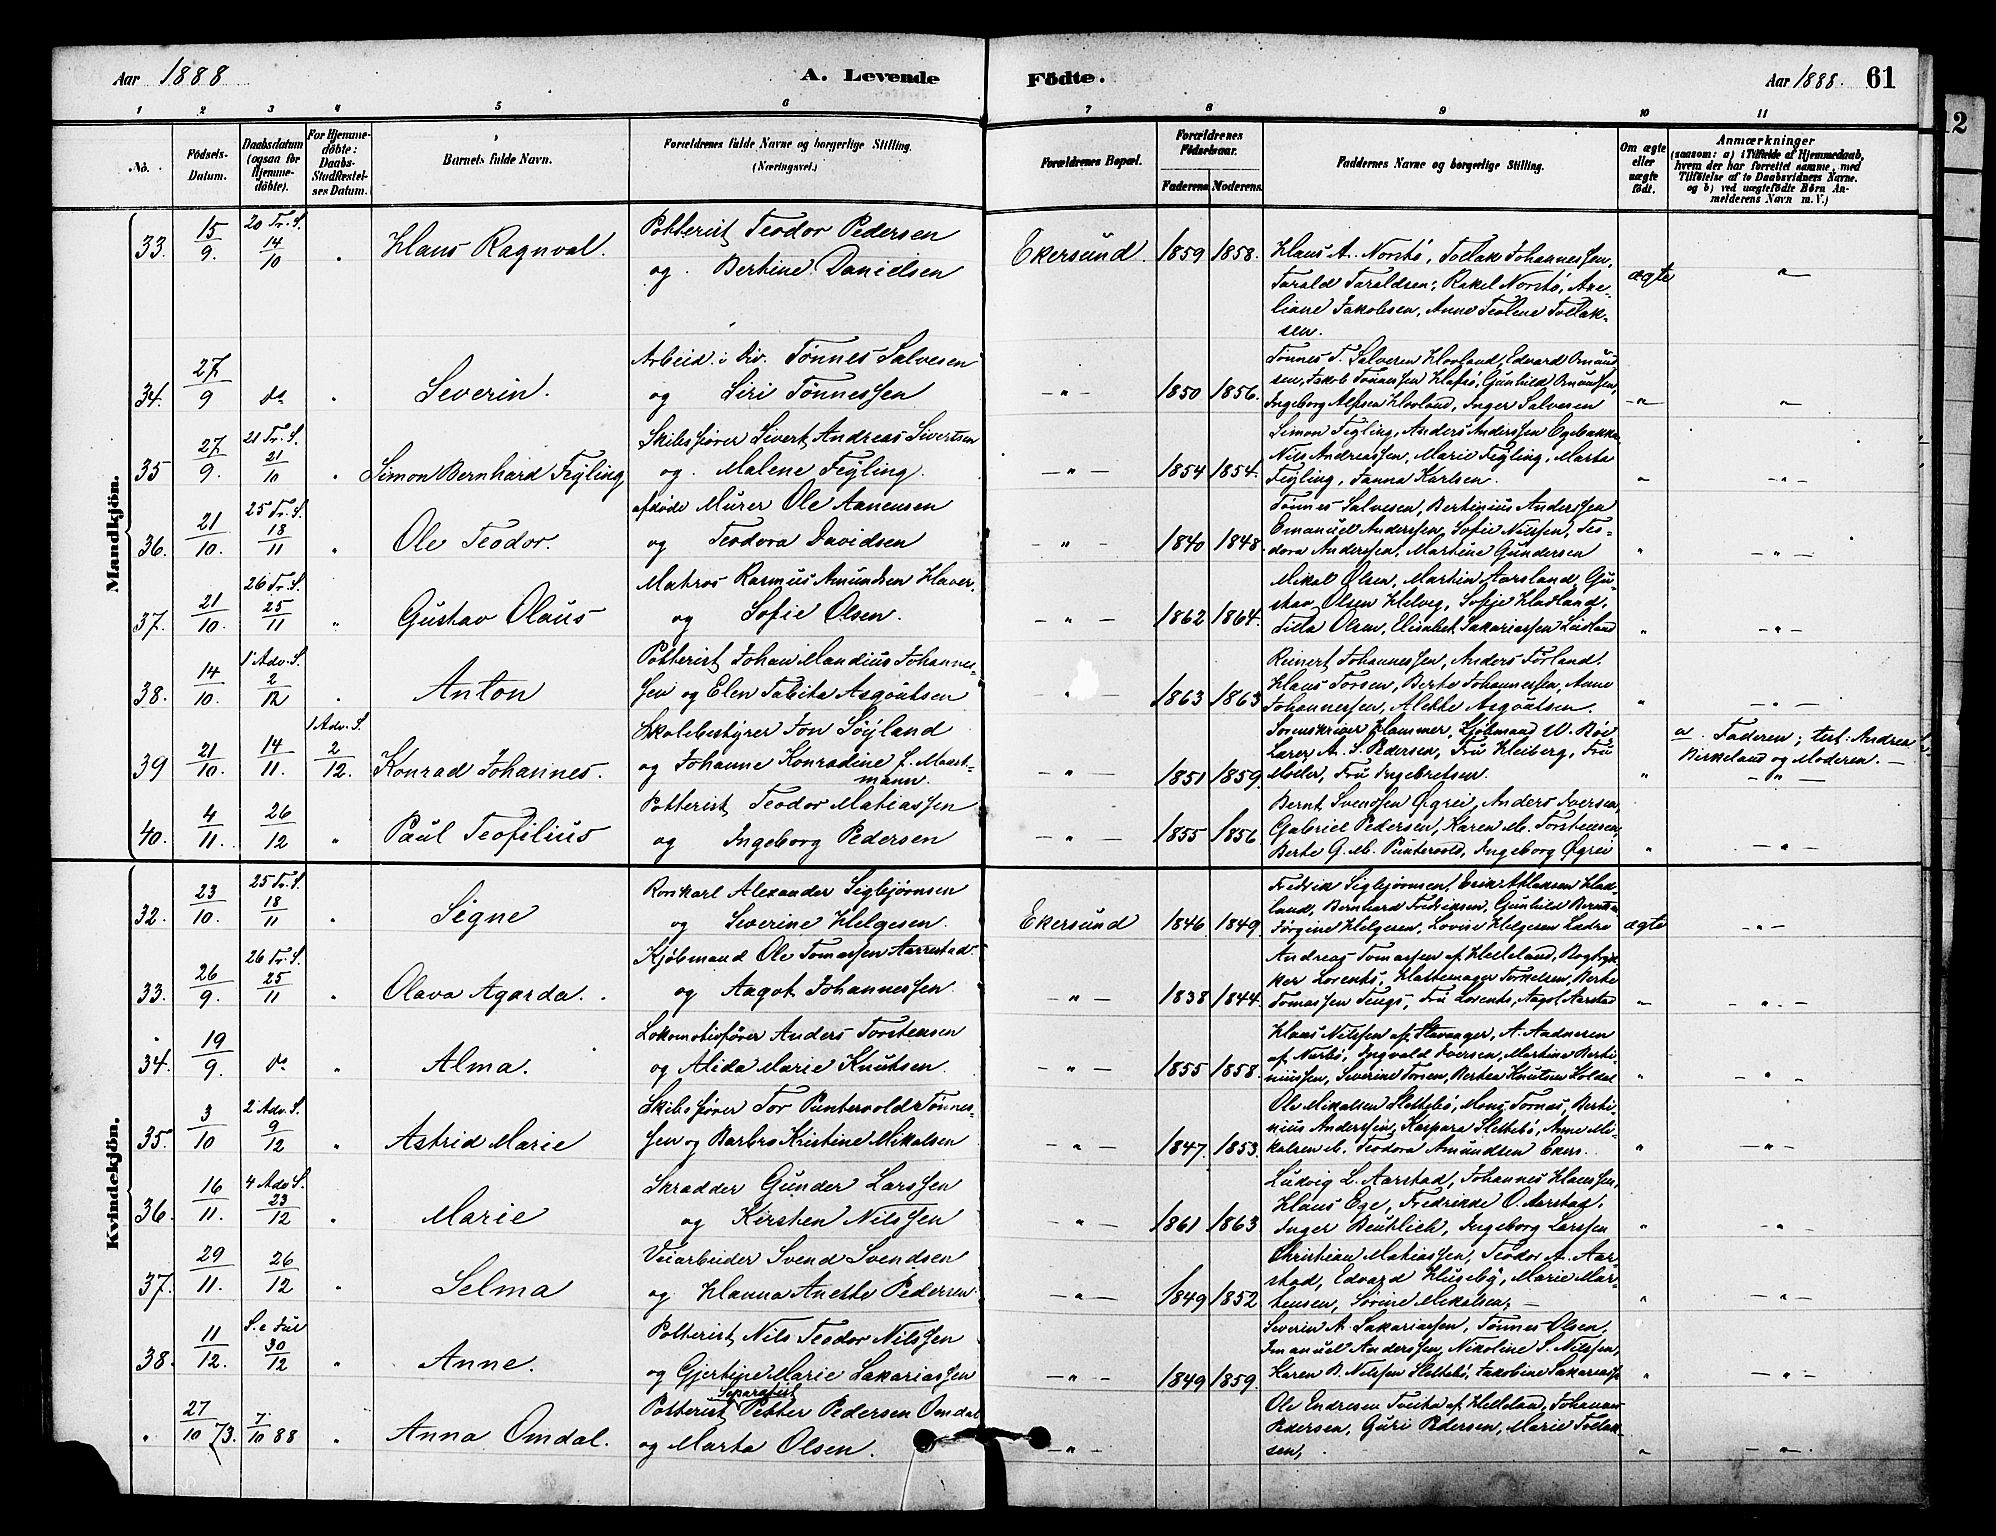 Aar 1888
A. Levende
Födte.
Aar 1888.
61
2
1 2 3 4 5 6 7 8 9 10 11
No.
Födsels-Datum.
Daabsdatum (ogsaa for Hjemmedöbte).
For Hjemmedöbte: Daabs-Stadfæstelses Datum.
Barnets fulde Navn.
Forældrenes fulde Navne og borgerlige Stilling. (Næringsvei.)
Forældrenes Bopæl.
Forældrenes Födselsaar.
Faderens
Moderens.
Faddernes Navne og borgerlige Stilling.
Om ægte eller uægte födt.
Anmærkninger
(saasom: a) i Tilfælde af Hjemmedaab, hvem der har forrettet samme, med Tilföielse af to Daabsvidners Navne. og b) ved uægtefödte Börn Anmelderens Navn m. V.)
Mandkjön.
33. 15/9. 20 Tr. S. 14/10 " Klaus Ragnval. Potterist Teodor Pedersen
og Bertine Danielsen
Ekersund. 1859 1858. Klaus A. Norstø, Tollak Johannessen,
Tarald Taraldsen, Rakel Norstø, Axe-
liane Jakobsen, Anne Teoline Tollak-
sen.
ægte "
34. 27/9 do " Severin. Arbeid. i Div. Tønnes Salvesen
og Siri Tønnessen
- " - 1850 1856. Tønnes T. Salvesen Hovland, Edvard Omund
sen, Jakob Tønnessen Hafsø, Gunhild Omundsen,
Ingeborg Hovland, Inger Salvesen
- " - "
35 27/9. 21 Tr. S. 21/10 " Simon Bernhard Feyling Skibsfører Sivert Andreas Sivertsen
og Malene Feyling.
- " - 1854 1854. Simon Feyling, Anders Anderssen Egebakken
Nils Andreassen, Marie Feyling, Marta
Feyling, Janna Karlsen.
" - " -
36. 21/10. 25 Tr. S. 18/11 " Ole Teodor. afdøde Murer Ole Aanensen
og Teodora Davidsen
- " - 1840 1848. Tønnes Salvesen, Bertinius Anderssen
Emanuel Anderssen, Sofie Nilssen, Teo-
dora Anderssen, Martine Gundersen
" - " -
37. 21/10. 26 Tr. S. 25/11 " Gustav Olaus Matros Rasmus Amundsen Haver.
og Sofie Olsen.
- " - 1862 1864. Mikal Olsen, Martin Aarsland, Gu-
stav Olsen Helvig, Sofie Hadland,
Lilla Olsen, Elisabet Sakariassen Leidland
" - " -
38. 14/10. 1' Adv. S. 2/12 " Anton Potterist Johan Mandius Johannes-
sen og Elen Tabita Asgautsen
- " - 1863 1863 Reinert Johannessen, Anders Førland.
Klaus Torsen, Berte Johannessen, Anne
Johannessen, Alette Asgautsen.
" - " -
39 21/10. 14/11. 1 Adv. S. 2/12. Konrad Johannes. Skolebestyrer Jon Søyland
og Johanne Konradine J. Maast-
mann.
- " - 1851 1859. Sorenskriver Hammer, Kjøbmand W. Bøe
Lærer A. S. Pedersen, Fru Kleiberg, Fru
Møeler, Fru Ingebretsen.
" a. Faderen; test: Andrea
Birkeland og Moderen. -
40. 4/11. 26/12 " Paul Teofilius Potterist Teodor Matiassen
og Ingeborg Pedersen
- " - 1855 1856 Bernt Svendsen Øgrei, Anders Iversen,
Gabriel Pedersen, Karen M. Torstensen,
Berte G. M. Puntervold, Ingeborg Øgrei
" - " -
Kvindekjön.
32. 23/10. 25 Tr. S. 18/11 " Signe Rorskarl Alexander Sigbjørnsen
og Severine Helgesen.
Ekersund 1846 1849. Fredrik Sigbjørnsen, Enik Aslaksen Had-
land, Bernhard Fredriksen, Gunhild
Jørgine Helgesen, Lovise Helgesen Ladre
ægte - " -
33. 26/9. 26 Tr. S. 25/11 " Olava Agarda. Kjøbmand Ole Tomassen Aarrestad.
og Aagot Johannessen.
- " - 1838 1844. Andreas Tomassen af Helleland, Bogtryk-
ker Lorents, Hattemager Torkelsen, Berte
Tomassen Tengs, Fru Lorents, Aagot Aarstad
" - " -
34. 19/9. do " Alma. Lokomotivfører Anders Torstensen
og Alida Marie Knutsen.
- " - 1855 1858. Klaus Nilssen af Stavanger, A. Aadnesen
af Nærbø, Ingvald Iversen, Martine Berti-
niussen, Severine Torsen, Bertea Knutsen Koldal
" - " -
35. 3/10 2' Adv. S. 9/12 " Astrid Marie Skibsfører Tor Puntervold Tønnes-
sen og Barbro Kristine Mikalsen
- " - 1847. 1853. Ole Mikalsen Slettebø, Mons Tornas, Berti-
nius Anderssen, Kaspara Slettebø, Anne Mi-
kalsen M., Teodora Amundsen Eker.
" - " -
36. 16/11. 4 Adv S. 23/12 " Marie Skrædder Gunder Larssen
og Kirsten Nilssen
- " - 1861 1863 Ludvig L. Aarstad, Johannes Klaussen,
Klaus Ege, Fredrikke O. Aarstad,
Inger Beutlich, Ingeborg Larssen
" "
37. 29/11. 26/12 " Selma Veiarbeider Svend Svendsen
og Hanna Anette Pedersen
- " - 1849 1852 Christian Matiassen, Teodor A. Aar-
stad, Edvard Huseby, Marie Mar-
tensen, Sørine Mikalsen, -
" - " -
38. 11/12. S. e Jul 30/12 " Anne. Potterist Nils Teodor Nilssen
og Gjertine Marie Sakariassen
- " - 1849 1859. Severin A. Sakariassen, Tønnes Olsen,
Imanuel Anderssen, Nikoline S. Nilssen,
Karen B. Nilssen Slettebø, Jakobine Sakariasse
" - " -
" 27/10 73. 7/10 88 " Anna Omdal. Separatist
Potterist Petter Pedersen Omdal
og Marta Olsen.
- " - Ole Endresen Tveita af Helleland, Johannes
Pedersen, Guri Pedersen, Marie Tollak-
sen,
" - " -